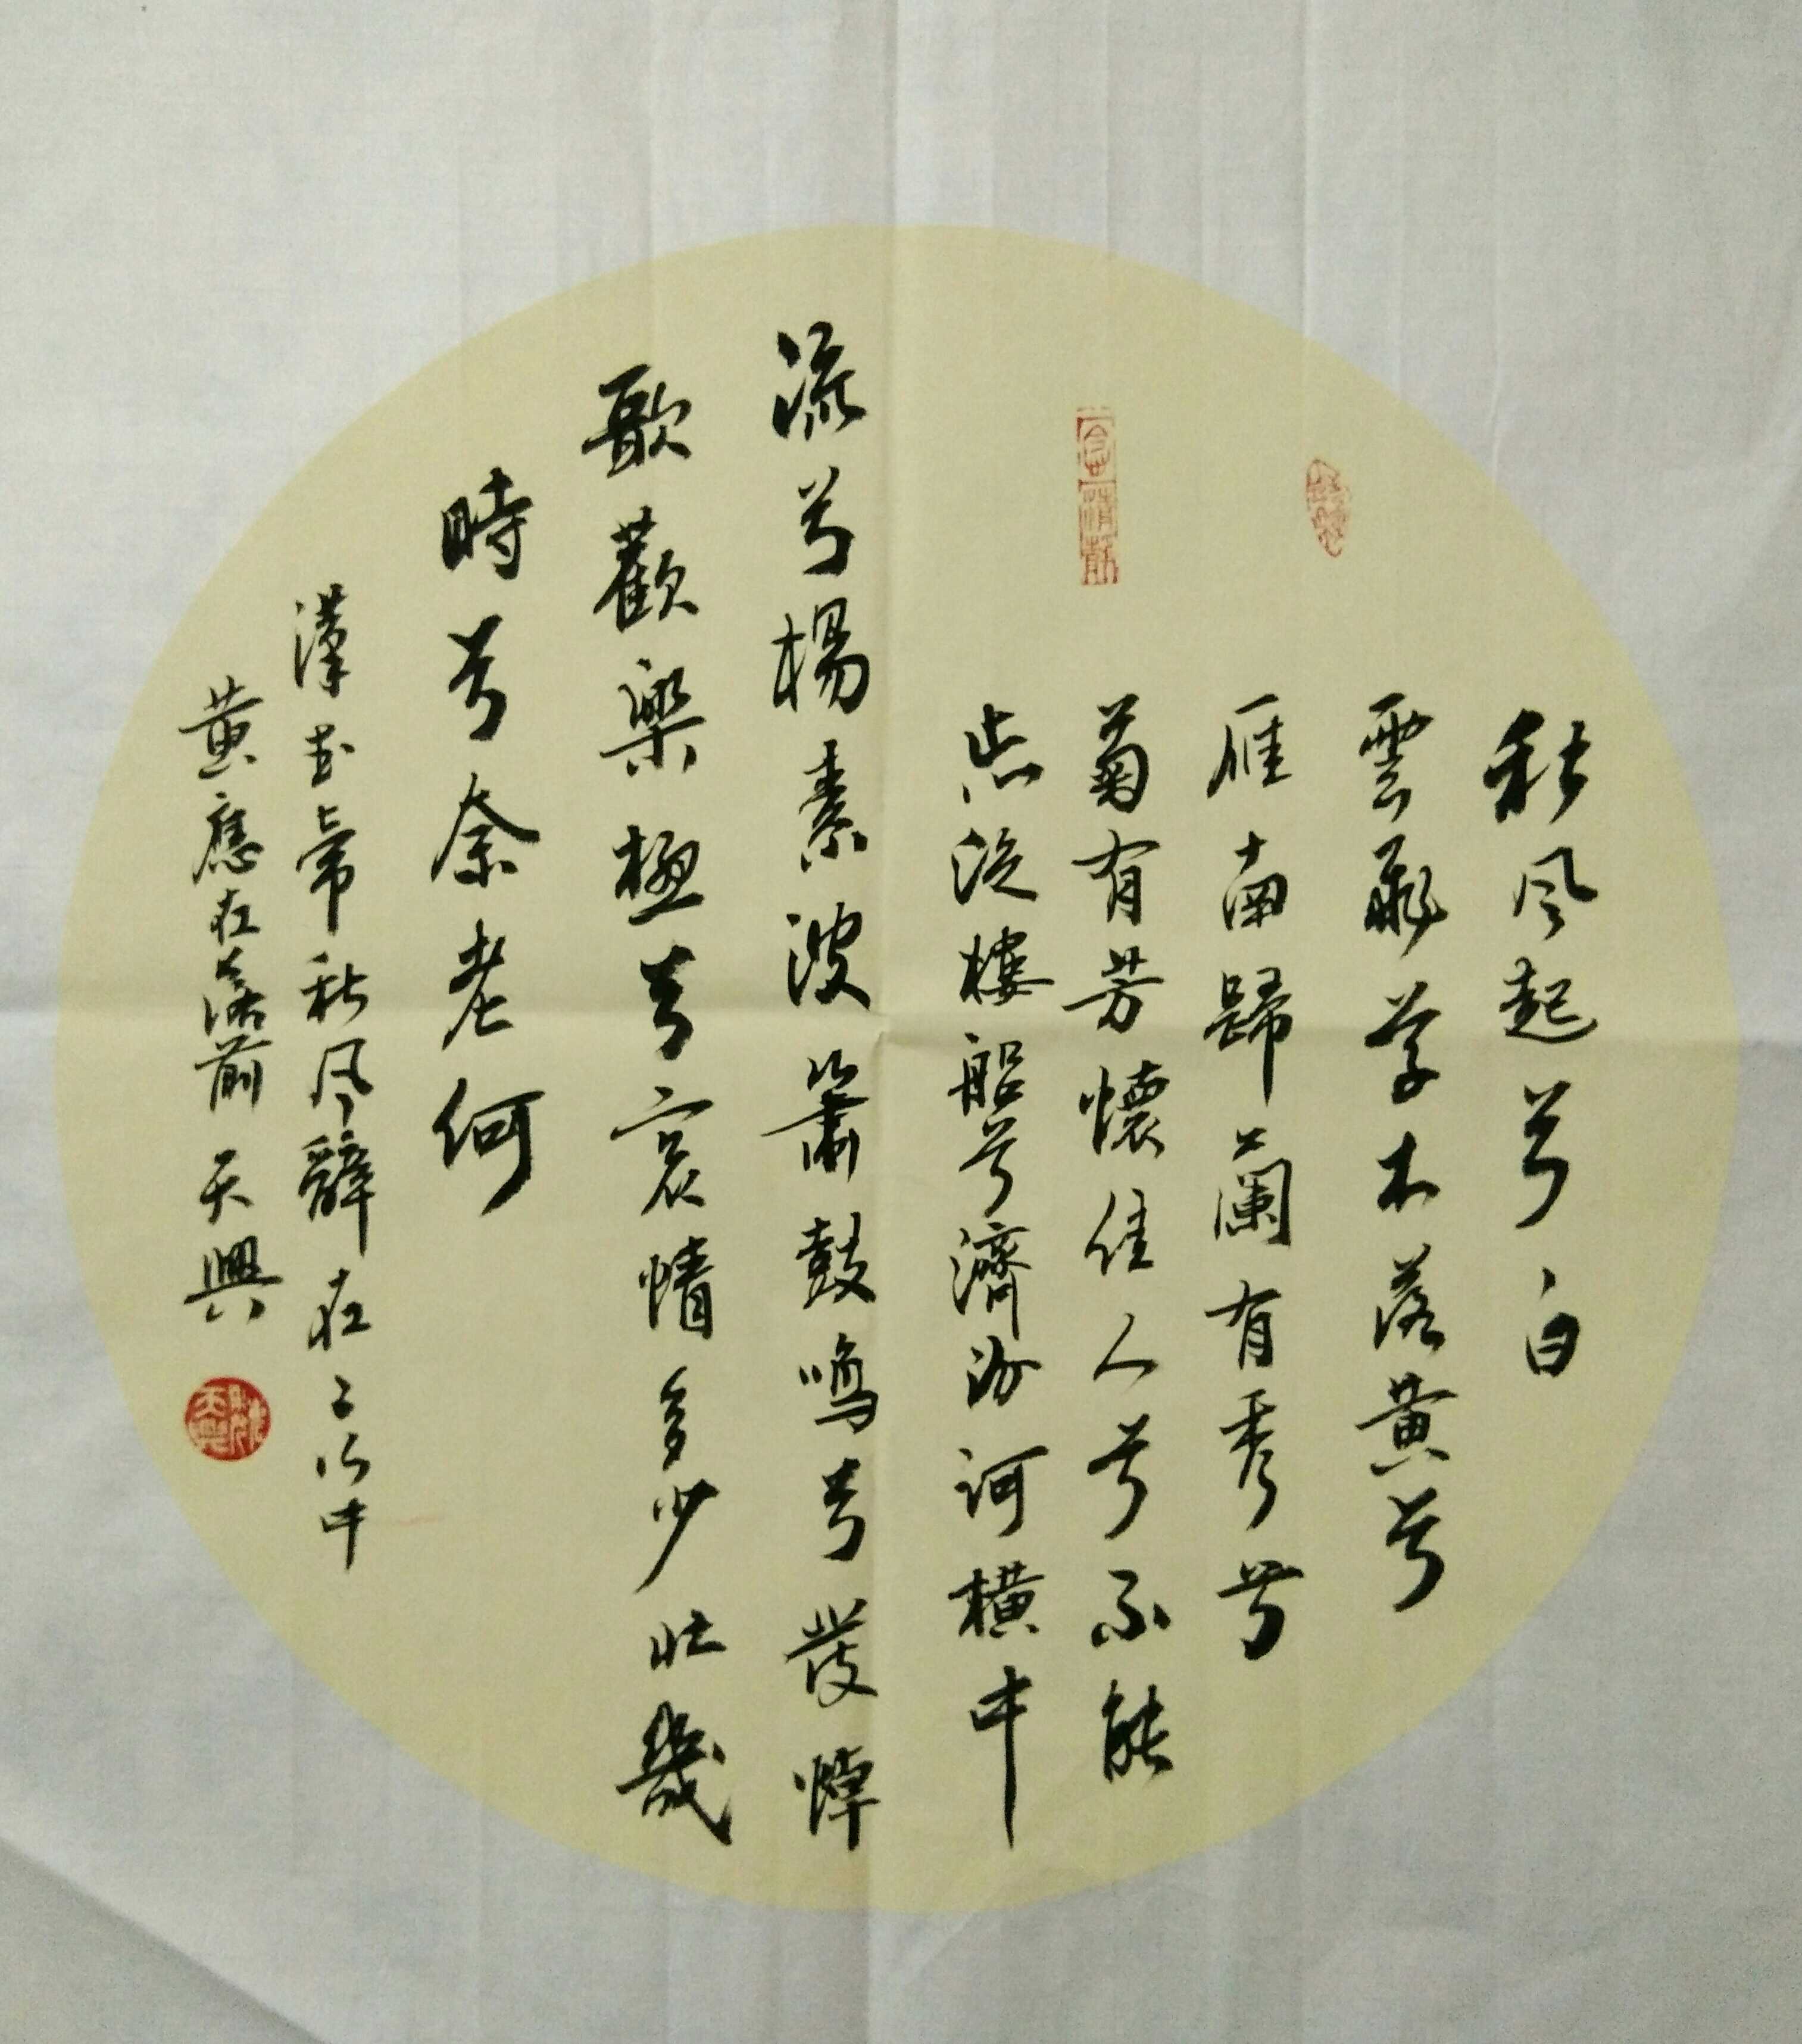 秋风起兮白
雲飛草木落黄兮
雁南歸蘭有秀兮
菊有芳懷佳人兮不能
忘泛樓船兮濟汾河横中
流兮楊素波簫鼓鳴兮發棹
歌歡樂極兮哀情多少壯幾
時兮奈老何
漢武帝秋风辭在二次中
黄應在落前 天興